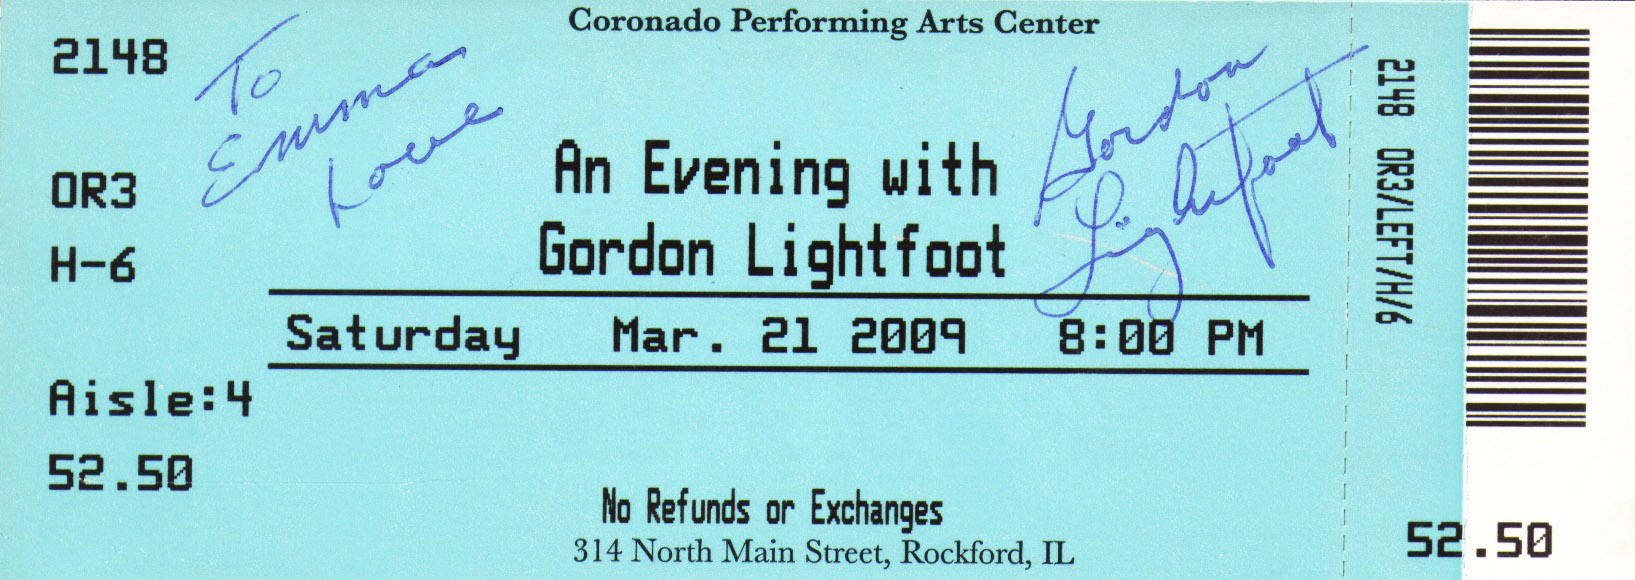 Coronado Performing Arts Center
2148
To
Emma
Love
Gordon
Lightfoot
An Evening with
Gordon Lightfoot
OR3
H-6
Saturday Mar. 21 2009 8:00 PM
Aisle:4
52.50
No Refunds or Exchanges
314 North Main Street, Rockford, IL
2148 OR3/LEFT/H/6
52.50